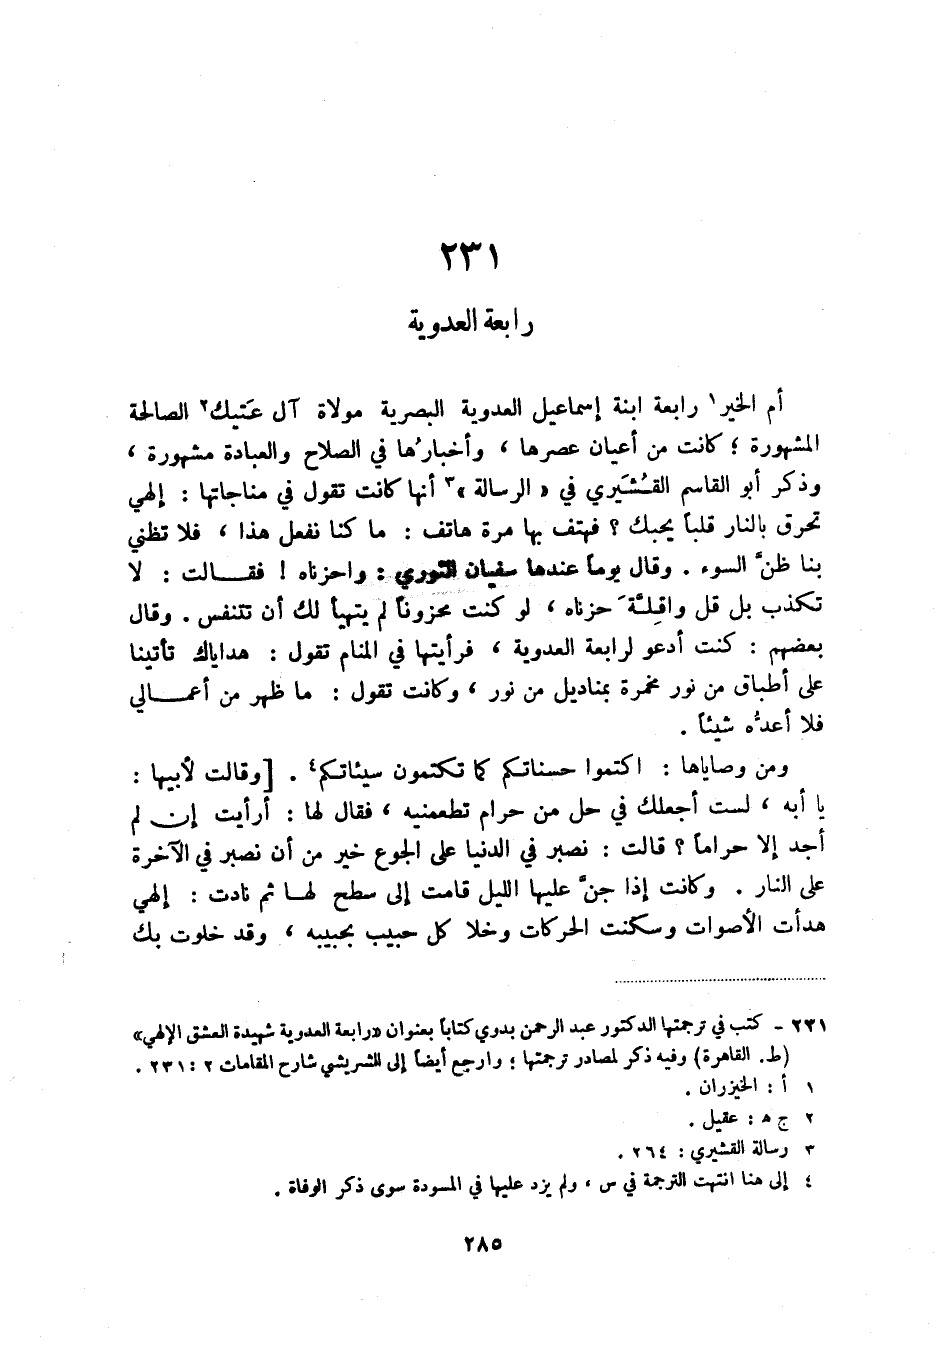 ٢٣١
رابعة العدوية
أم الخير١ رابعة ابنة إسماعيل العدوية البصرية مولاة آل عَتيك٢ الصالحة
المشهورة ؛ كانت من أعيان عصرها ، وأخبارُها في الصلاح والعبادة مشهورة ،
وذكر أبو القاسم القُشَيري في « الرسالة »٣ أنها كانت تقول في مناجاتها : إلهي
تحرق بالنار قلباً يحبك ؟ فهتف بها مرة هاتف : ما كنا نفعل هذا ، فلا تظني
بنا ظنَّ السوء . وقال يوماً عندها سفيان الثوري : واحزناه ! فقالت : لا
تكذب بل قل واقِلَّةَ حزناه ، لو كنت محزوناً لم يتهيأ لك أن تتنفس . وقال
بعضهم : كنت أدعو لرابعة العدوية ، فرأيتها في المنام تقول : هداياك تأتينا
على أطباق من نور مخمرة بمناديل من نور ، وكانت تقول : ما ظهر من أعمالي
فلا أعدُّه شيئاً .
ومن وصاياها : اكتموا حسناتكم كما تكتمون سيئاتكم٤ . [وقالت لأبيها :
يا أبه ، لست أجعلك في حل من حرام تطعمنيه ، فقال لها : أرأيت إن لم
أجد إلا حراماً ؟ قالت : نصبر في الدنيا على الجوع خير من أن نصبر في الآخرة
على النار . وكانت إذا جنَّ عليها الليل قامت إلى سطح لها ثم نادت : إلهي
هدأت الأصوات وسكنت الحركات وخلا كل حبيب بحبيبه ، وقد خلوت بك
٢٣١ - كتب في ترجمتها الدكتور عبد الرحمن بدوي كتاباً بعنوان «رابعة العدوية شهيدة العشق الإلهي»
(ط. القاهرة) وفيه ذكر لمصادر ترجمتها ؛ وارجع أيضاً إلى الشريشي شارح المقامات ٢ : ٢٣١ .
١ أ : الخيزران .
٢ ج ه : عقيل .
٣ رسالة القشيري : ٢٦٤ .
٤ إلى هنا انتهت الترجمة في س ، ولم يزد عليها في المسودة سوى ذكر الوفاة .
٢٨٥